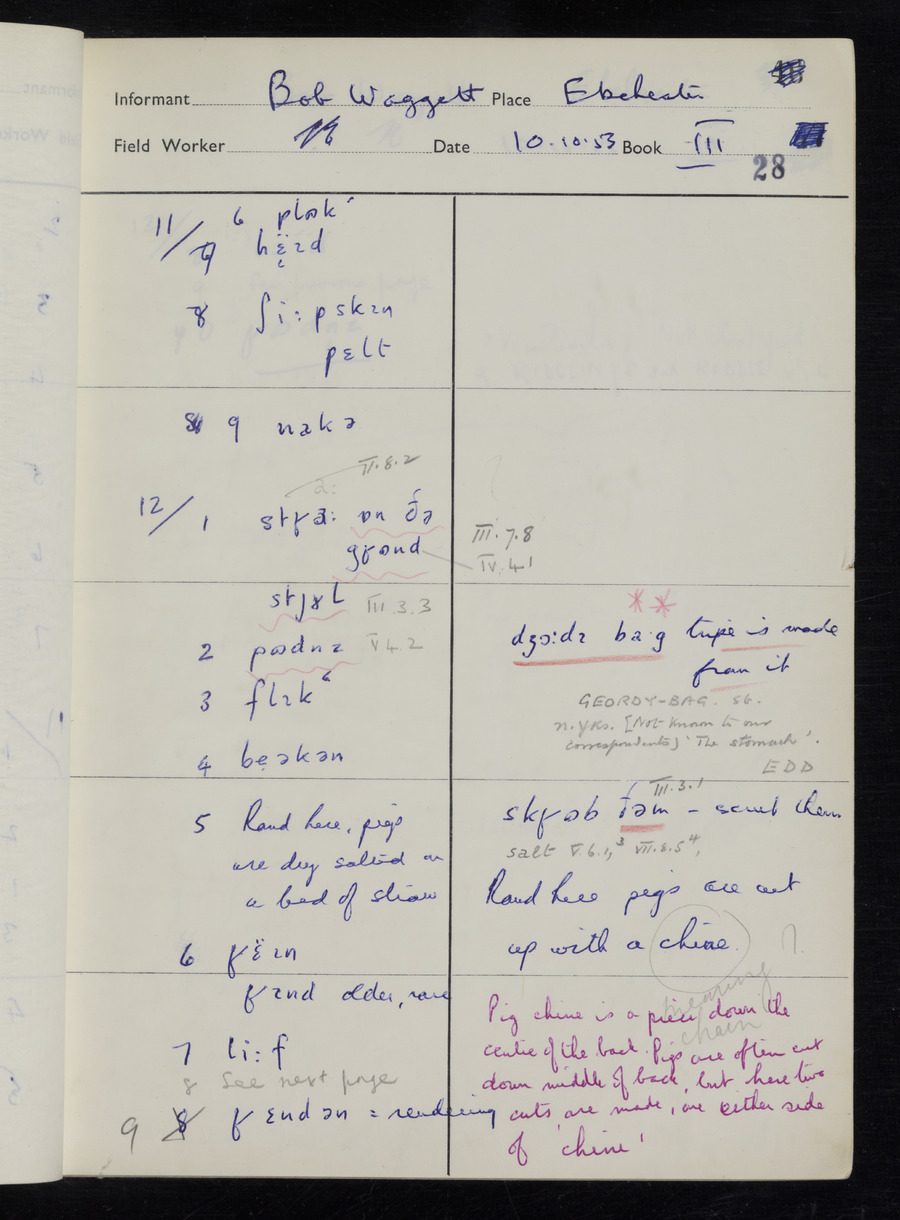 Informant Bob Waggett Place Ebchester
Field Worker Date 10.10.53 Book III
28
11/ 6 plɒk
7 hɛ̈ɪd
8 ʃi:pskɪn
pɛlt
9 nakə
II.8.2
12/1 ɒn ðə
gʁɒnd
III.7.8
IV.4.1
III.3.3
2 V.4.2
3 flɪk
4 bẹəkən
dʒɔ:dɪ ba·g tripe is made
from it
GEORDY-BAG. sb.
n.Yks. [Not known to our
correspondents] 'The stomach'.
EDD
5 Round here, pigs
are dry salted on
a bed of straw
III.3.1
skʁɒb ðəm – scrub them
salt V.6.1,³ VII.8.5⁴,
Round here pigs are cut
up with a chine. ?
meaning
chain
6 ʁɛ̈ɪn
ʁɪnd older, rare
7 li:f
8 See next page
9 ʁɛndən = rendering
Pig chine is a piece down the
centre of the back. Pigs are often cut
down middle of back, but here two
cuts are made, one either side
of 'chine'